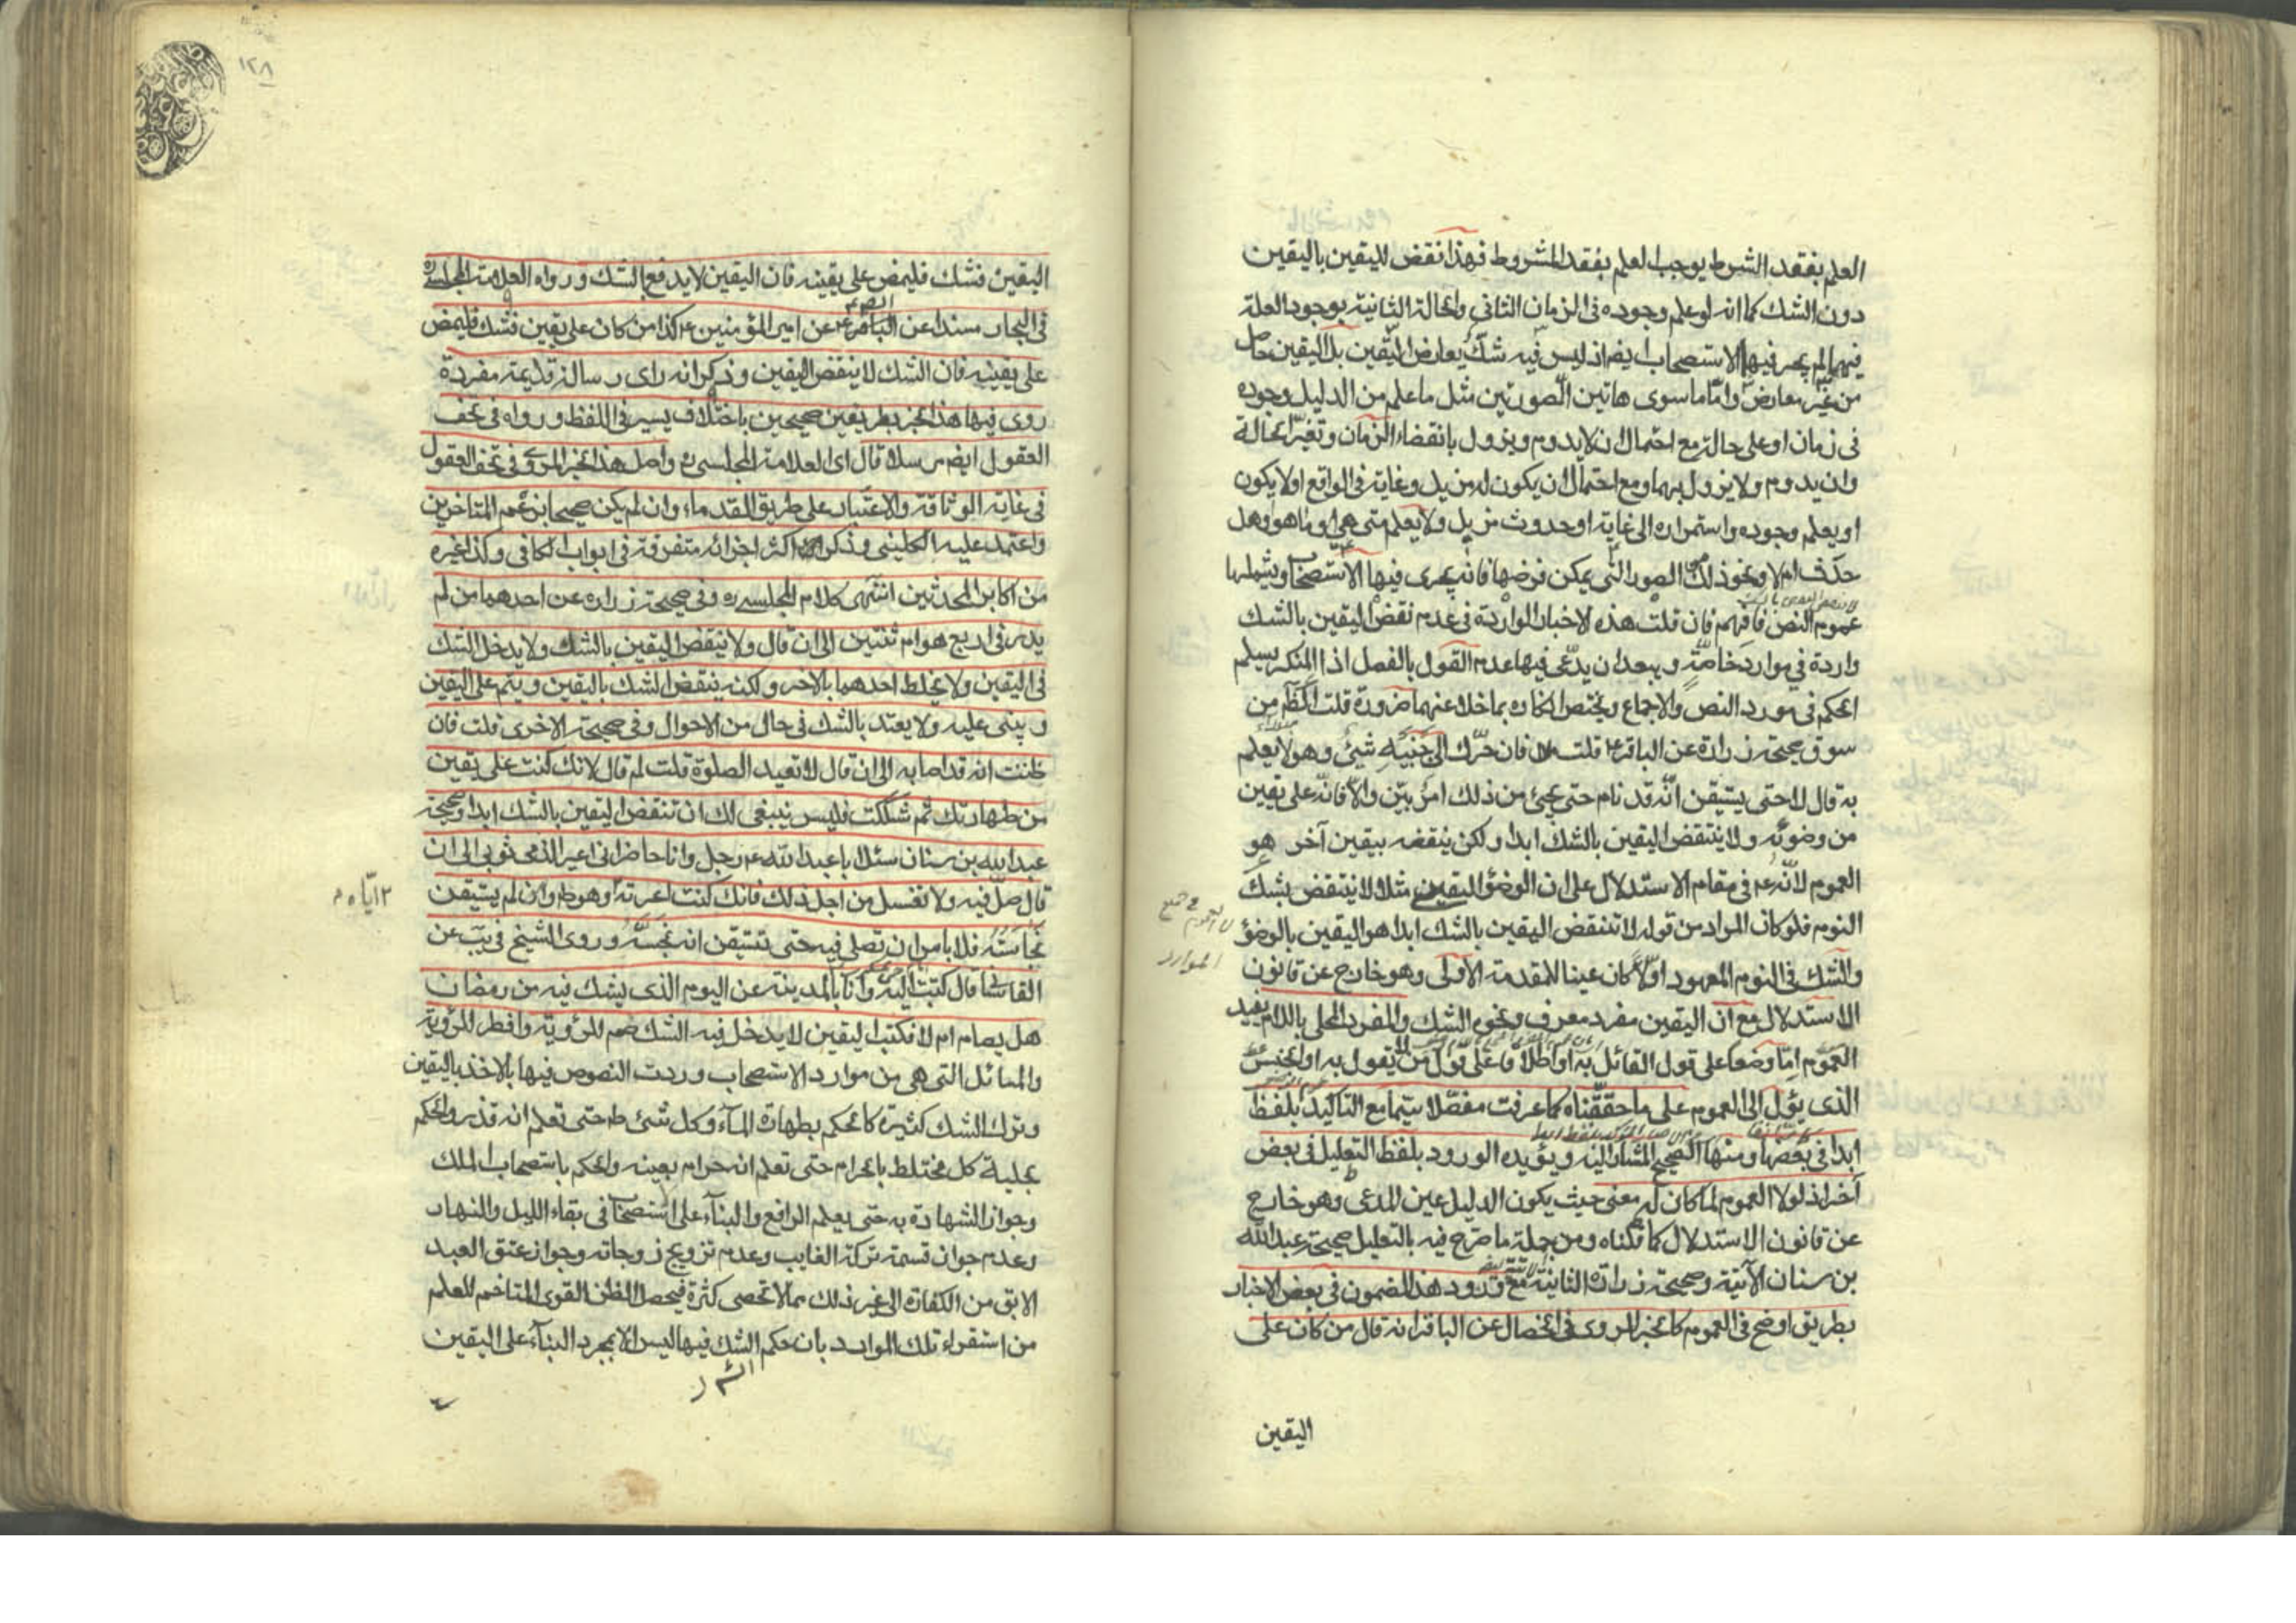 العلم بفقد الشرط يوجب العلم بفقد المشروط فهذا نقض لليقين باليقين
دون الشك كما انه لو علم وجوده فى الزمان الثانى والحالة الثانية بوجود العلة
فيهما لم يجر فيها الاستصحاب ايضا اذ ليس فيه شك يعارض اليقين بل اليقين حاصل
من غير معارض واما ما سوى هاتين الصورتين مثل ما علم من الدليل وجوده
فى زمان او على حالة مع احتمال ان لا يدوم ويزول بانقضاء الزمان وتغير الحالة
وان يدوم ولا يزول بهما ومع احتمال ان يكون له مزيل وغاية فى الواقع او لا يكون
او يعلم وجوده واستمراره الى غاية او حدوث مزيل ولا يعلم متى هى او ما هو وهل
حدث ام لا ونحو ذلك من الصور التى يمكن فرضها فانه يجرى فيها الاستصحاب ويشملها
عموم النص فافهم فان قلت هذه الاخبار الواردة فى عدم نقض اليقين بالشك
واردة فى موارد خاصة ويبعد ان يدعى فيها عدم القول بالفصل اذ المنكر يسلم
الحكم فى مورد النص والاجماع ويختص انكاره بما خلا عنهما ضرورة قلت الظاهر من
سوق صحيحة زرارة عن الباقر ع قلت فان حرك الى جنبيه شئ وهو لا يعلم
به قال لا حتى يستيقن انه قد نام حتى يجئ من ذلك امر بين والا فانه على يقين
من وضوئه ولا ينتقض اليقين بالشك ابدا ولكن ينقضه بيقين آخر هو
العموم لانه ع فى مقام الاستدلال على ان الوضوء اليقينى مثلا لا ينتقض بشك
النوم فلو كان المراد من قوله لا تنقض اليقين بالشك ابدا هو اليقين بالوضوء
والشك فى النوم المعهود اولا كان عينا للمقدمة الاولى وهو خارج عن قانون
الاستدلال مع ان اليقين مفرد معرف ونحوه الشك والمفرد المحلى باللام يفيد
العموم اما وضعا على قول القائل به او اطلاقا على قول من لا يقول به او الجنس
الذى يؤل الى العموم على ما حققناه كما عرفت مفصلا سيما مع التاكيد بلفظ
ابدا فى بعضها ومنها الصحيح المشار اليه ويؤيده الورود بلفظ التعليل فى بعض
آخر اذ لولا العموم لما كان له معنى حيث يكون الدليل عين المدعى وهو خارج
عن قانون الاستدلال كما قلناه ومن جملة ما صرح فيه بالتعليل صحيحة عبد الله
بن سنان الآتية وصحيحة زرارة الثانية مع ورود هذا المضمون فى بعض الاخبار
بطريق اوضح فى العموم كالخبر المروى فى الخصال عن الباقر انه قال من كان على
فى جميع
الموارد
اليقين
١٢٨
اليقين فشك فليمض على يقينه فان اليقين لا يدفع بالشك ورواه العلامة المجلسى ره
فى البحار مسندا عن الباقر ع عن امير المؤمنين ع كذا من كان على يقين فشك فليمض
على يقينه فان الشك لا ينقض اليقين وذكر انه راى رسالة قديمة مفردة
روى فيها هذا الخبر بطريقين صحيحين باختلاف يسير فى اللفظ ورواه فى تحف
العقول ايضا مرسلا قال اى العلامة المجلسى ره واصل هذا الخبر المروى فى تحف العقول
فى غاية الوثاقة والاعتبار على طريق القدماء وان لم يكن صحيحا بزعم المتاخرين
واعتمد عليه الكلينى وذكر اكثر اجزائه متفرقة فى ابواب الكافى وكذا غيره
من اكابر المحدثين انتهى كلام المجلسى ره وفى صحيحة زرارة عن احدهما من لم
يدر فى اربع هو ام ثنتين الى ان قال ولا ينقض اليقين بالشك ولا يدخل الشك
فى اليقين ولا يخلط احدهما بالآخر ولكنه ينقض الشك باليقين ويتم على اليقين
ويبنى عليه ولا يعتد بالشك فى حال من الاحوال وفى صحيحته الاخرى قلت فان
ظننت انه قد اصابه الى ان قال لا تعيد الصلوة قلت لم قال لانك كنت على يقين
من طهارتك ثم شككت فليس ينبغى لك ان تنقض اليقين بالشك ابدا وصحيحة
عبد الله بن سنان سئل ابا عبد الله ع رجل وانا حاضر انى اعير الذمى ثوبى الى ان
قال صل فيه ولا تغسل من اجل ذلك فانك كنت اعرته وهو طاهر وان لم يستيقن
اياه م
نجاسته فلا باس ان تصلى فيه حتى تستيقن انه نجسه وروى الشيخ فى يب عن
القاسانى قال كتبت اليه وانا بالمدينة عن اليوم الذى يشك فيه من رمضان
هل يصام ام لا فكتب اليقين لا يدخل فيه الشك صم للرؤية وافطر للرؤية
والمسائل التى هى من موارد الاستصحاب وردت النصوص فيها بالاخذ باليقين
وترك الشك كثيرة كالحكم بطهارة الماء وكل شئ ط حتى تعلم انه قذر والحكم
بحلية كل مختلط بالحرام حتى تعلم انه حرام بعينه والحكم باستصحاب الملك
وجواز الشهادة به حتى يعلم الرافع والبناء على الاستصحاب فى بقاء الليل والنهار
وعدم جواز قسمة تركة الغايب وعدم تزويج زوجاته وجواز عتق العبد
الابق من الكفارة الى غير ذلك مما لا تحصى كثرة فيحصل الظن القوى المتاخم للعلم
من استقراء تلك الموارد بان حكم الشك فيها ليس الا بمجرد البناء على اليقين